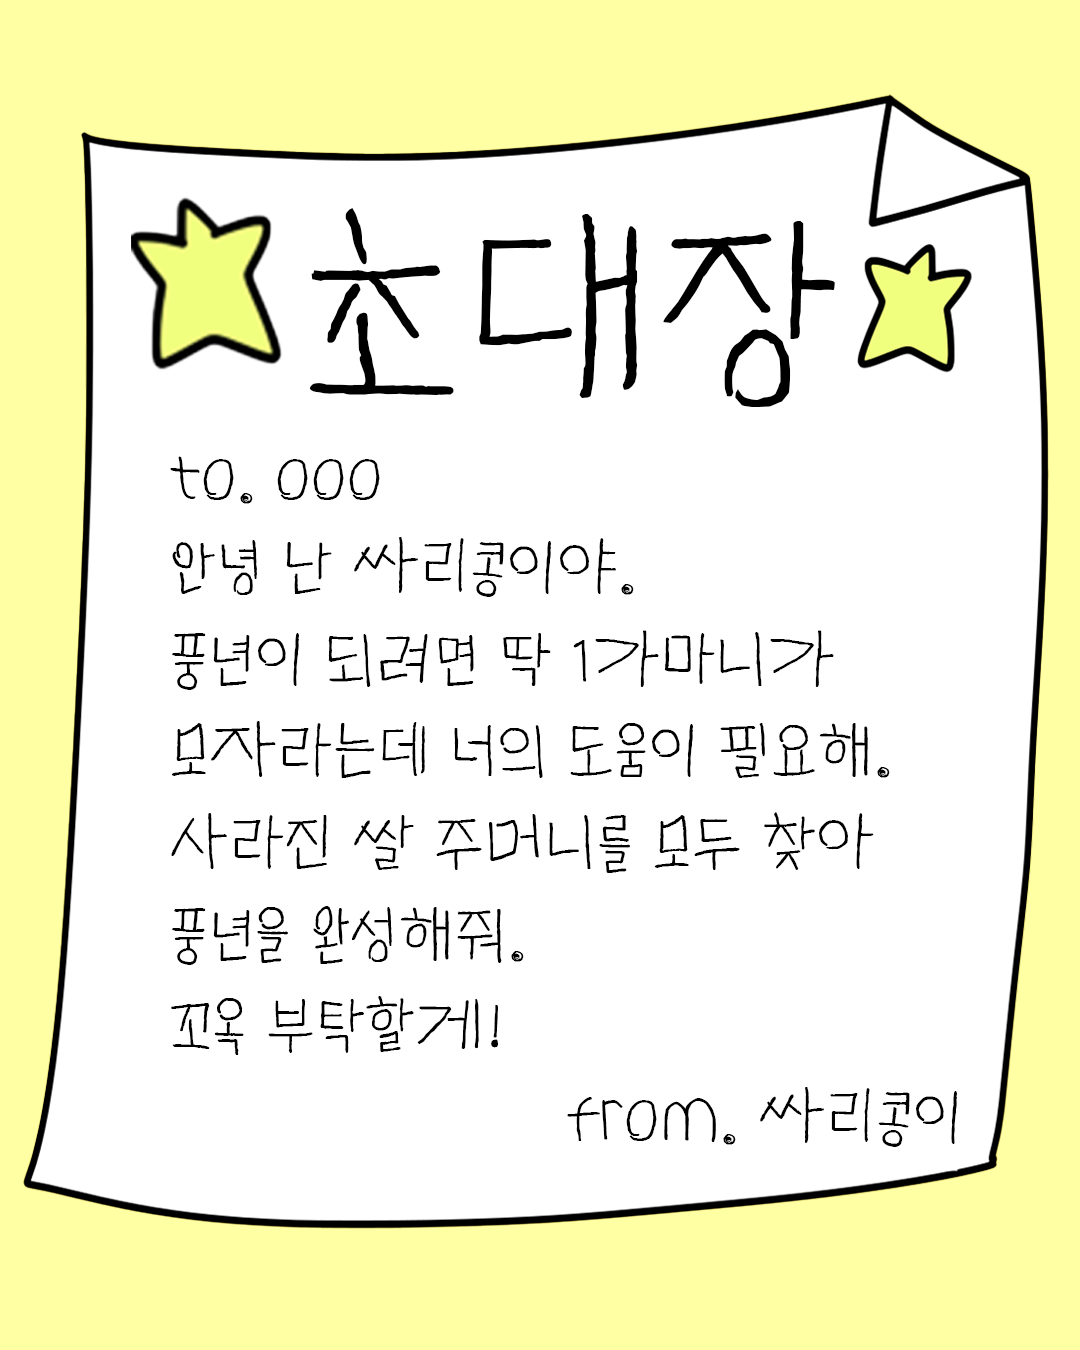 초대장
to. 000
안녕 난 싸리콩이야.
풍년이 되려면 딱 1가마니가
모자라는데 너의 도움이 필요해.
사라진 쌀 주머니를 모두 찾아
풍년을 완성해줘.
꼬옥 부탁할게!
from. 싸리콩이